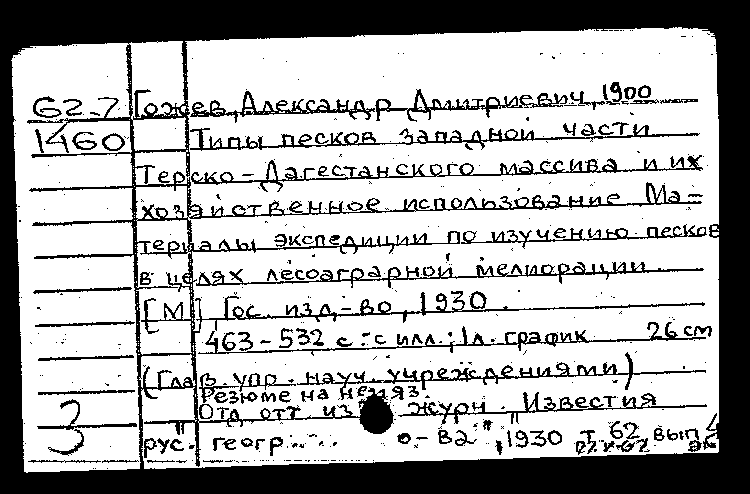 62-7 Гожев, Александр Дмитриевич, 1900
1460 Типы песков западной части
Терско-Дагестанского массива и их
хозяйственное использование Ма=
териалы экспедиции по изучению песков
в целях лесоаграрной мелиорации
[М] Гос. изд-во, 1930.
463-532 с. с илл.; 1л. график 26 cm
(Глав. упр. науч. учреждениями)
Резюме на нем яз.
Отд. отт из журн. "Известия
З рус. геогр..... о-ва", 1930 т 62, вып 4